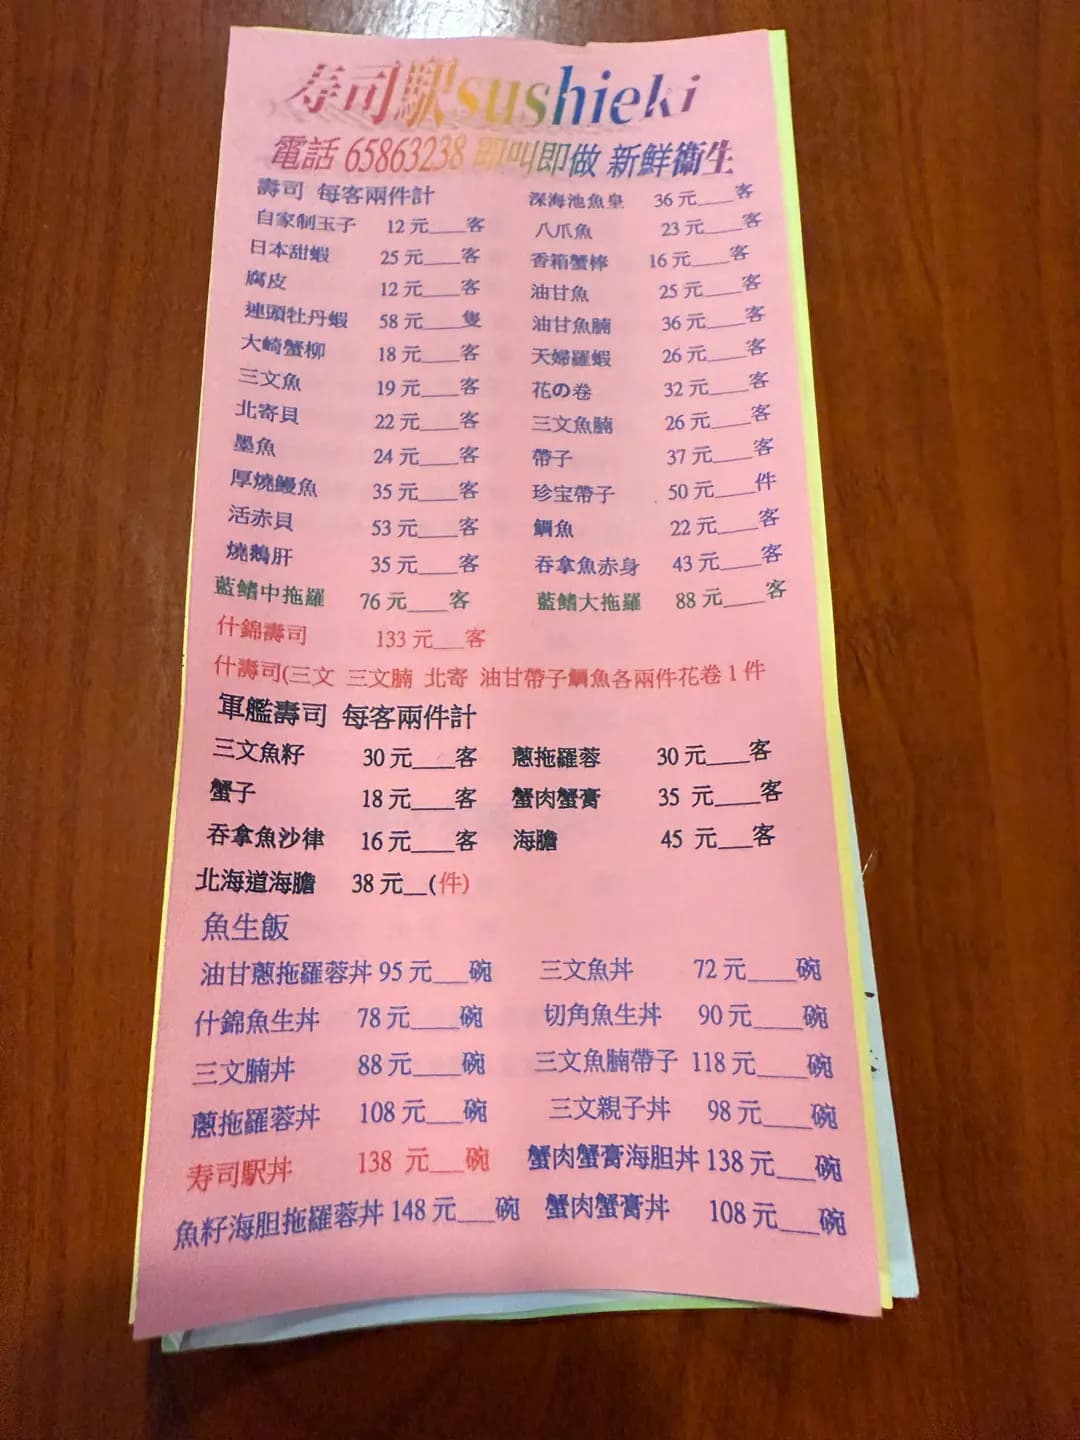 寿司駅sushieki
電話 65863238 即叫即做 新鮮衛生
壽司 每客兩件計 深海池魚皇 36元____客
自家制玉子 12元____客 八爪魚 23元____客
日本甜蝦 25元____客 香箱蟹棒 16元____客
腐皮 12元____客 油甘魚 25元____客
連頭牡丹蝦 58元____隻 油甘魚腩 36元____客
大崎蟹柳 18元____客 天婦羅蝦 26元____客
三文魚 19元____客 花の卷 32元____客
北寄貝 22元____客 三文魚腩 26元____客
墨魚 24元____客 帶子 37元____客
厚燒鰻魚 35元____客 珍宝帶子 50元____件
活赤貝 53元____客 鯛魚 22元____客
燒鵝肝 35元____客 吞拿魚赤身 43元____客
藍鰭中拖羅 76元____客 藍鰭大拖羅 88元____客
什錦壽司 133元___客
什壽司(三文 三文腩 北寄 油甘帶子鯛魚各兩件花卷1件
軍艦壽司 每客兩件計
三文魚籽 30元____客 蔥拖羅蓉 30元____客
蟹子 18元____客 蟹肉蟹膏 35 元____客
吞拿魚沙律 16元____客 海膽 45 元____客
北海道海膽 38元__(件)
魚生飯
油甘蔥拖羅蓉丼 95元___碗 三文魚丼 72元____碗
什錦魚生丼 78元____碗 切角魚生丼 90元____碗
三文腩丼 88元____碗 三文魚腩帶子 118元____碗
蔥拖羅蓉丼 108元____碗 三文親子丼 98元____碗
寿司駅丼 138 元___碗 蟹肉蟹膏海胆丼 138元___碗
魚籽海胆拖羅蓉丼 148元___碗 蟹肉蟹膏丼 108元___碗